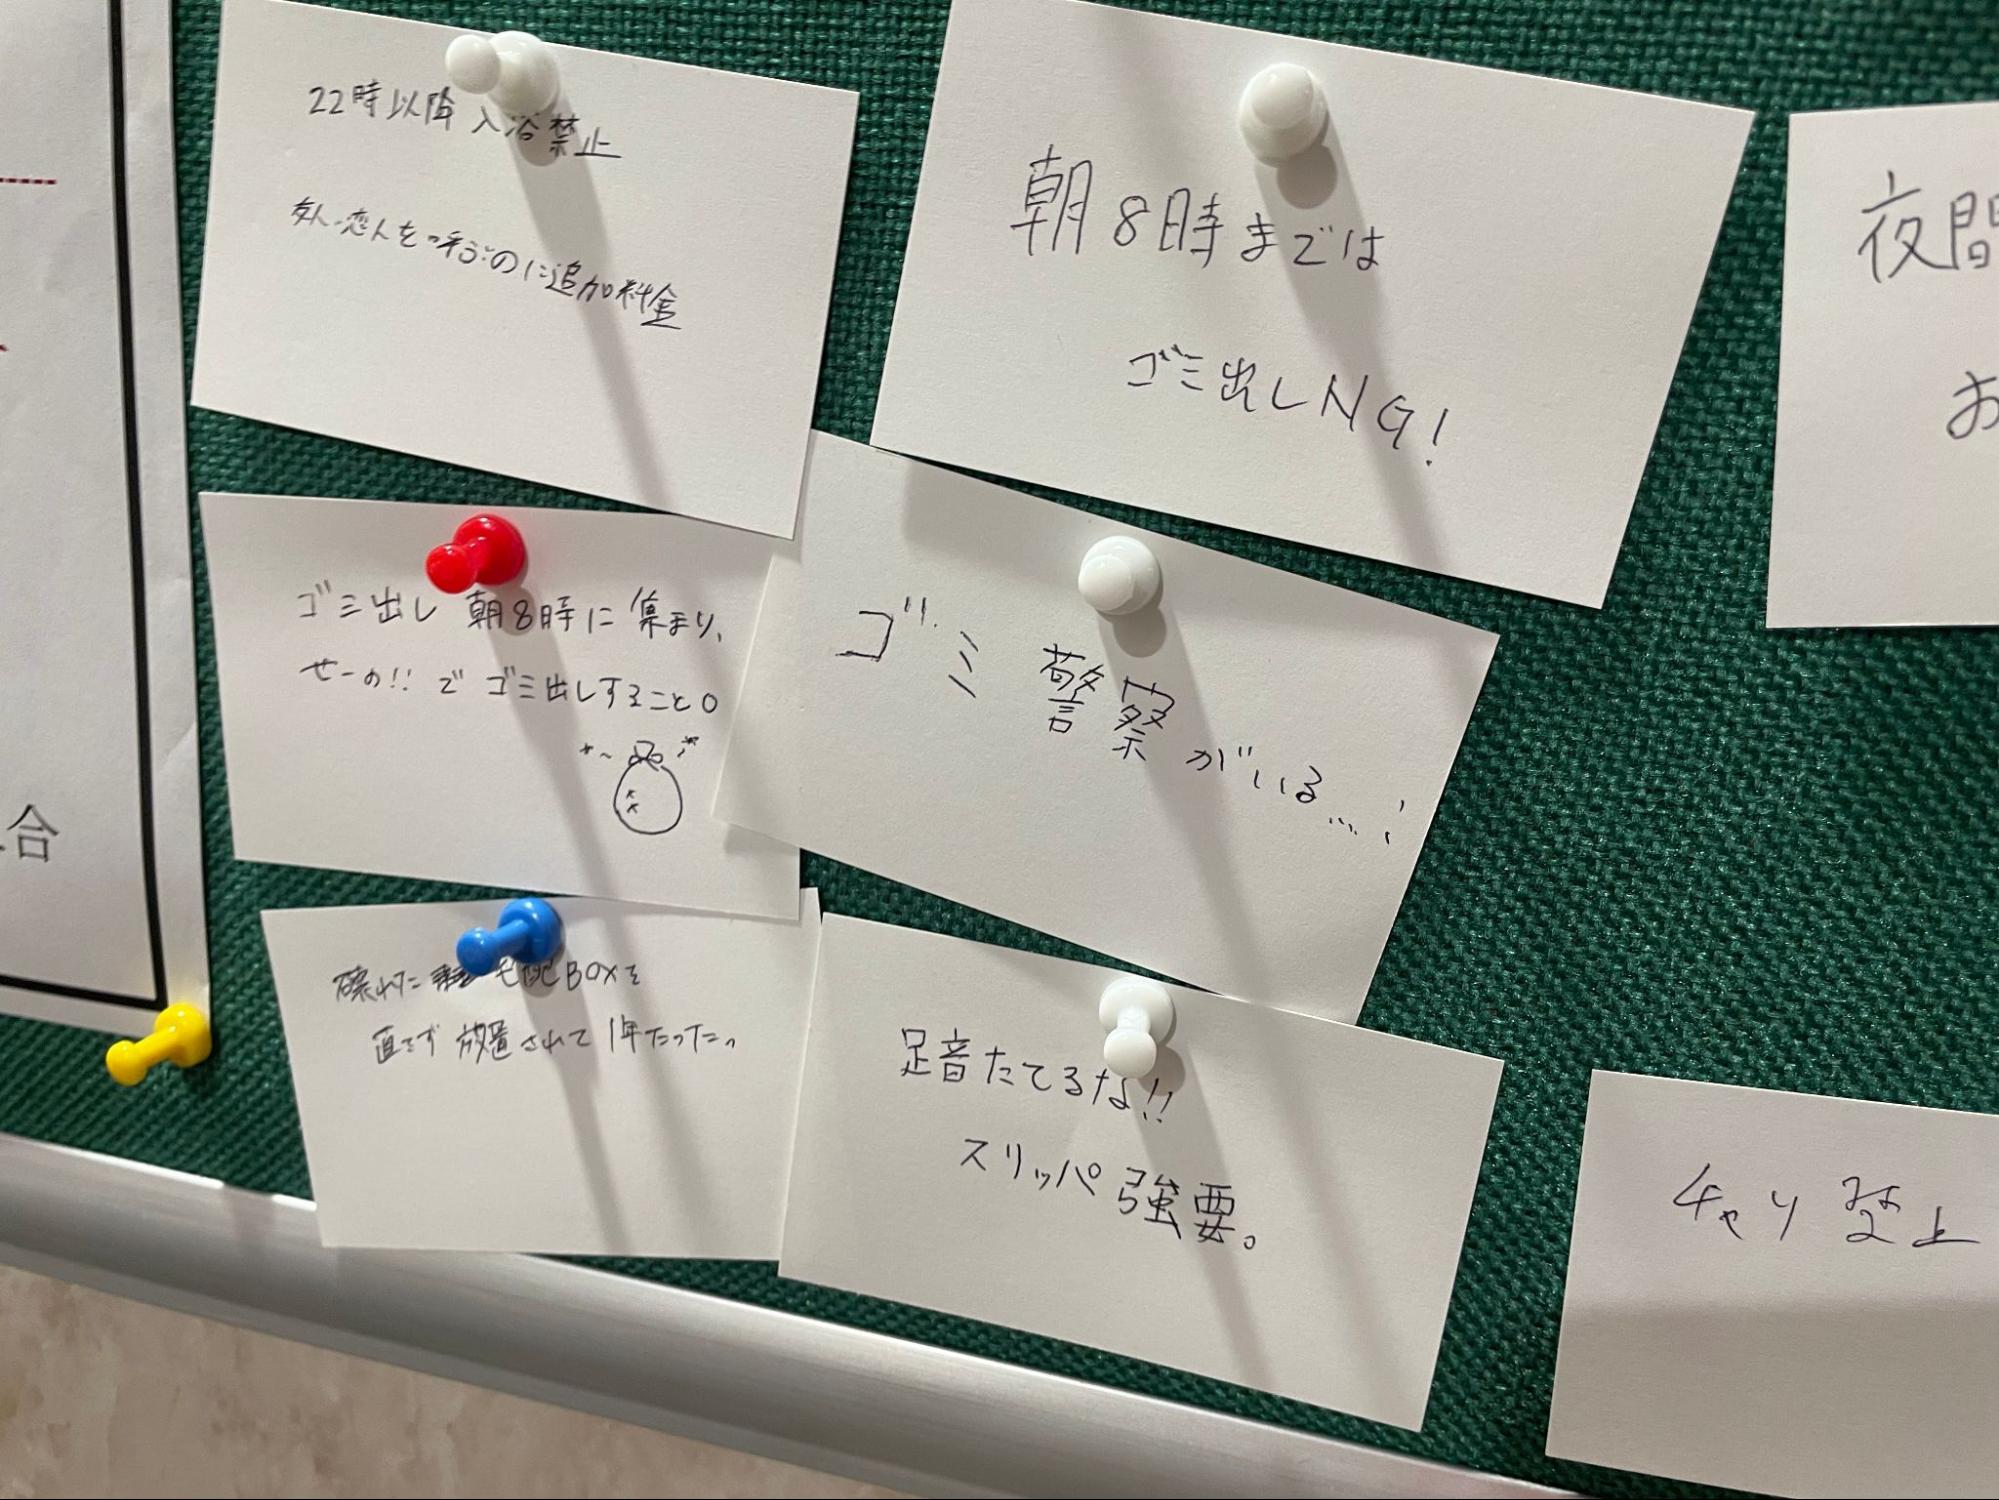 合
22時以降 入浴禁止
友人・恋人を呼ぶのに追加料金
朝8時までは
ゴミ出しNG!
夜間
お
ゴミ出し 朝8時に集まり、
せーの!! で ゴミ出しすること。
ゴミ 警察がいる...!
壊れた 宅配BOXを
直さず 放置されて 1年たった。
足音たてるな!!
スリッパ強要。
チャリ 禁止